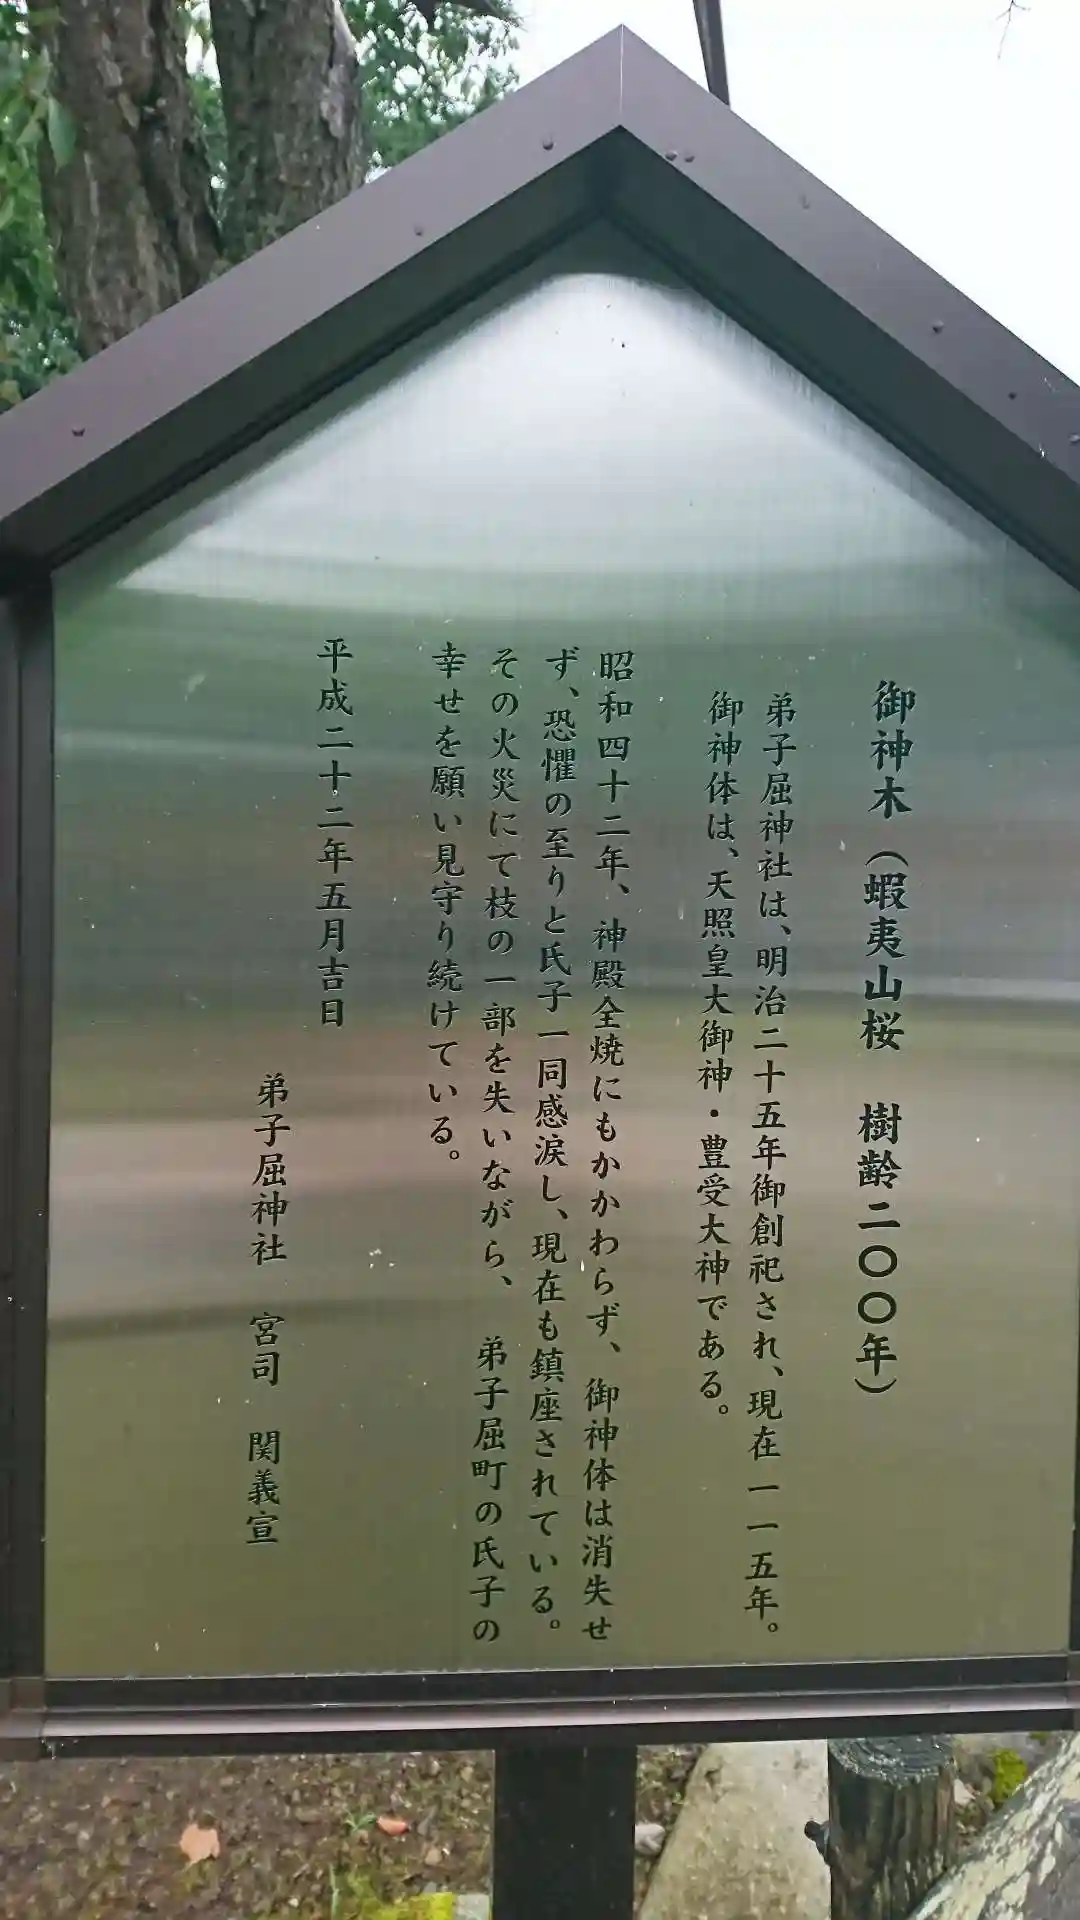 御神木（蝦夷山桜　樹齢二〇〇年）
弟子屈神社は、明治二十五年御創祀され、現在一一五年。
御神体は、天照皇大御神・豊受大神である。
昭和四十二年、神殿全焼にもかかわらず、御神体は消失せ
ず、恐懼の至りと氏子一同感涙し、現在も鎮座されている。
その火災にて枝の一部を失いながら、弟子屈町の氏子の
幸せを願い見守り続けている。
平成二十二年五月吉日
弟子屈神社　宮司　関義宣